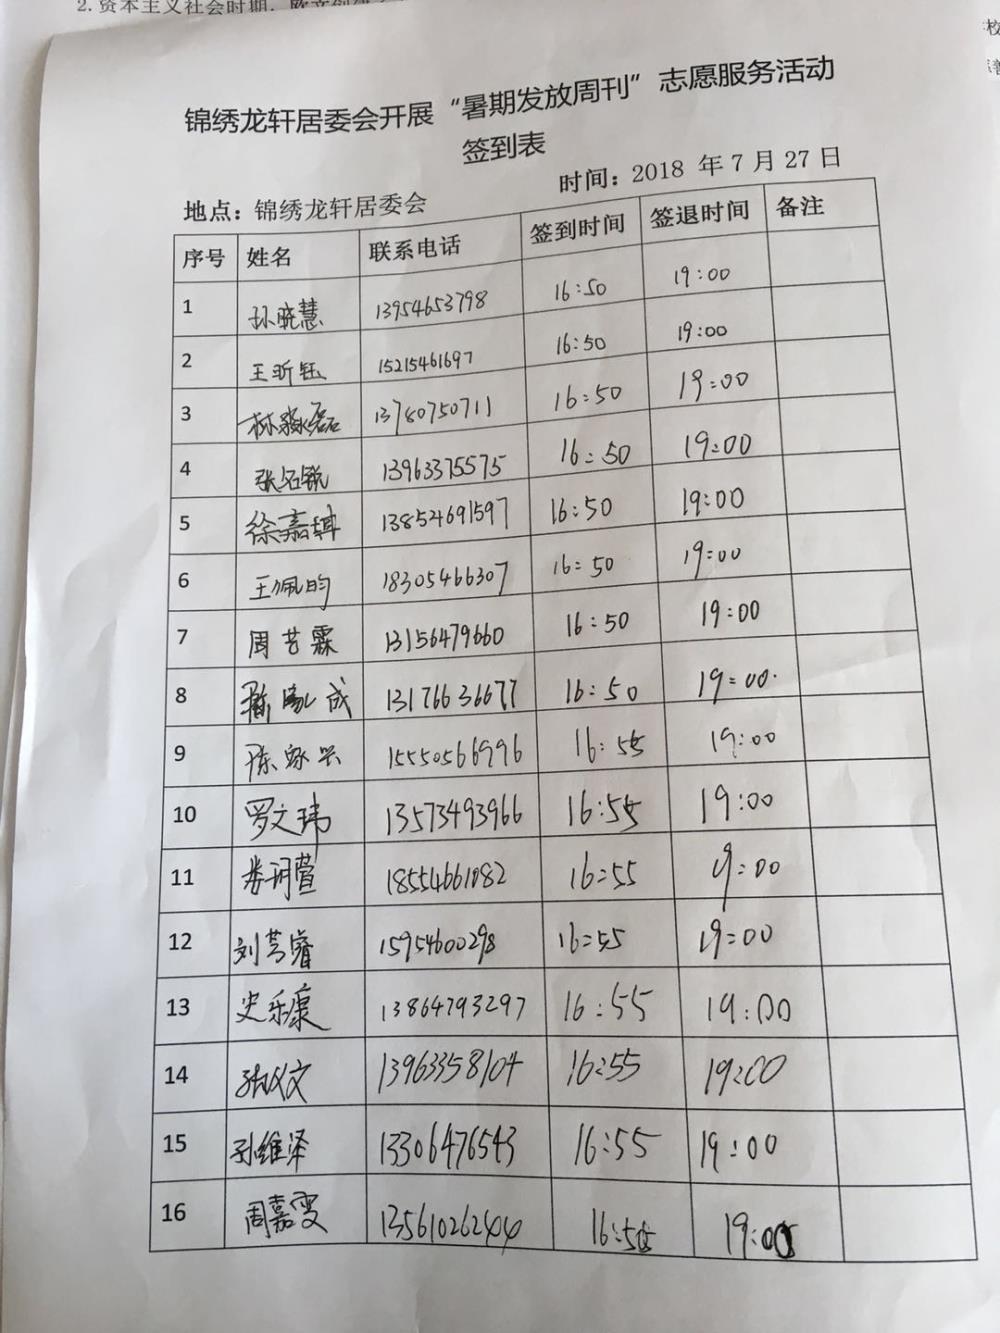 2.资本主义社会时期，欧文创
校
锦绣龙轩居委会开展“暑期发放周刊”志愿服务活动
签到表
地点：锦绣龙轩居委会 时间：2018 年 7 月 27 日
序号 姓名 联系电话 签到时间 签退时间 备注
1 孙晓慧 13954653798 16:50 19:00
2 王昕钰 15215461697 16:50 19:00
3 林淼磊 13780750711 16:50 19:00
4 张名锐 13963375575 16:50 19:00
5 徐嘉 13854691597 16:50 19:00
6 王佩昀 18305466307 16:50 19:00
7 周艺霖 13156479660 16:50 19:00
8 成 13176636677 16:50 19:00
9 陈家兴 15550566996 16:55 19:00
10 罗文玮 13573493966 16:55 19:00
11 娄玥萱 18554661082 16:55 19:00
12 刘芳睿 15954600298 16:55 19:00
13 史乐康 13864793297 16:55 19:00
14 张以文 13963358104 16:55 19:00
15 孙维泽 13306476543 16:55 19:00
16 周嘉雯 13561026244 16:55 19:00